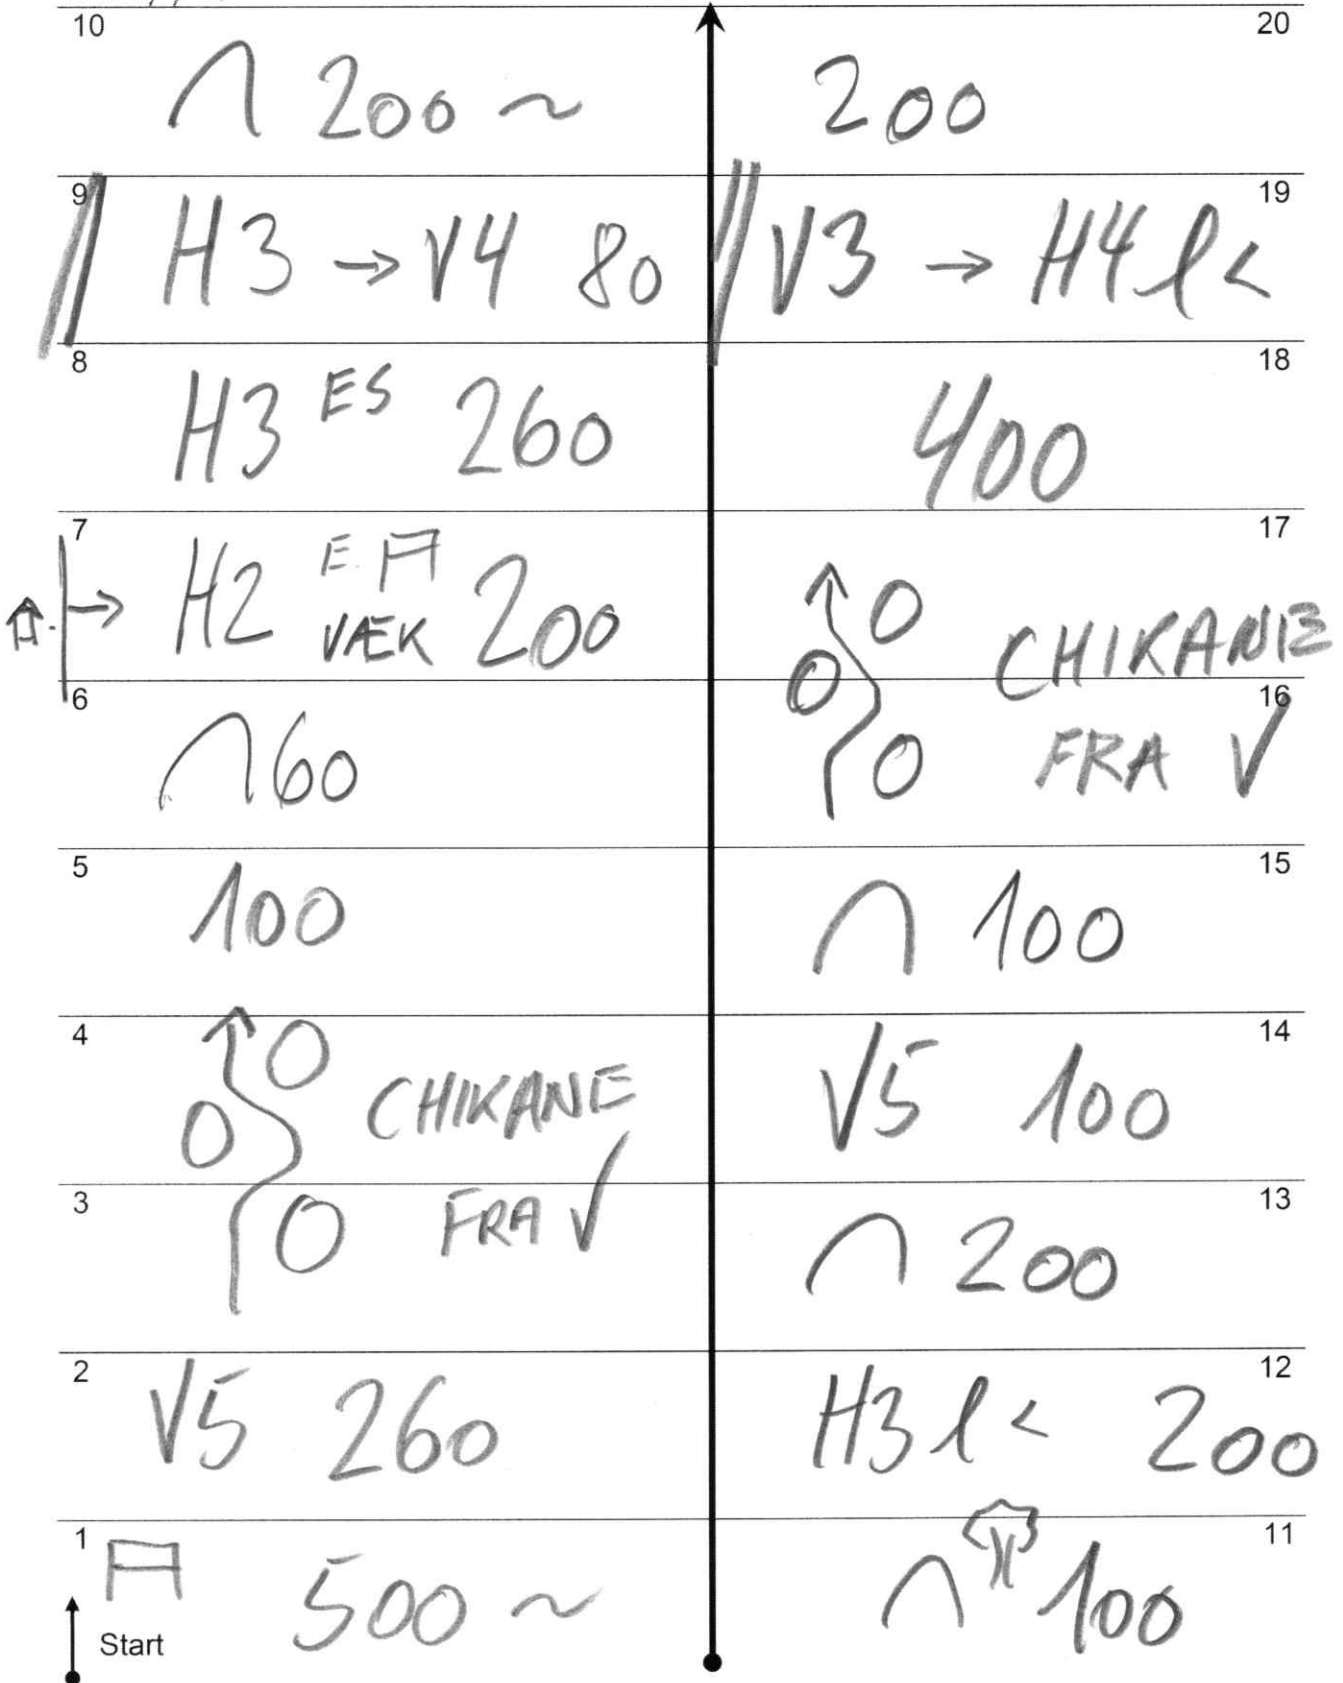 10
∩ 200 ~
9
H3 → V4 80
8
H3 ES 260
7
→ H2 E. VÆK 200
6
∩ 60
5
100
4
CHIKANE
3
FRA V
2
V5 260
1
500 ~
Start
20
200
19
V3 → H4 l <
18
400
17
CHIKANE
16
FRA V
15
∩ 100
14
V5 100
13
∩ 200
12
H3 l < 200
11
∩ 100